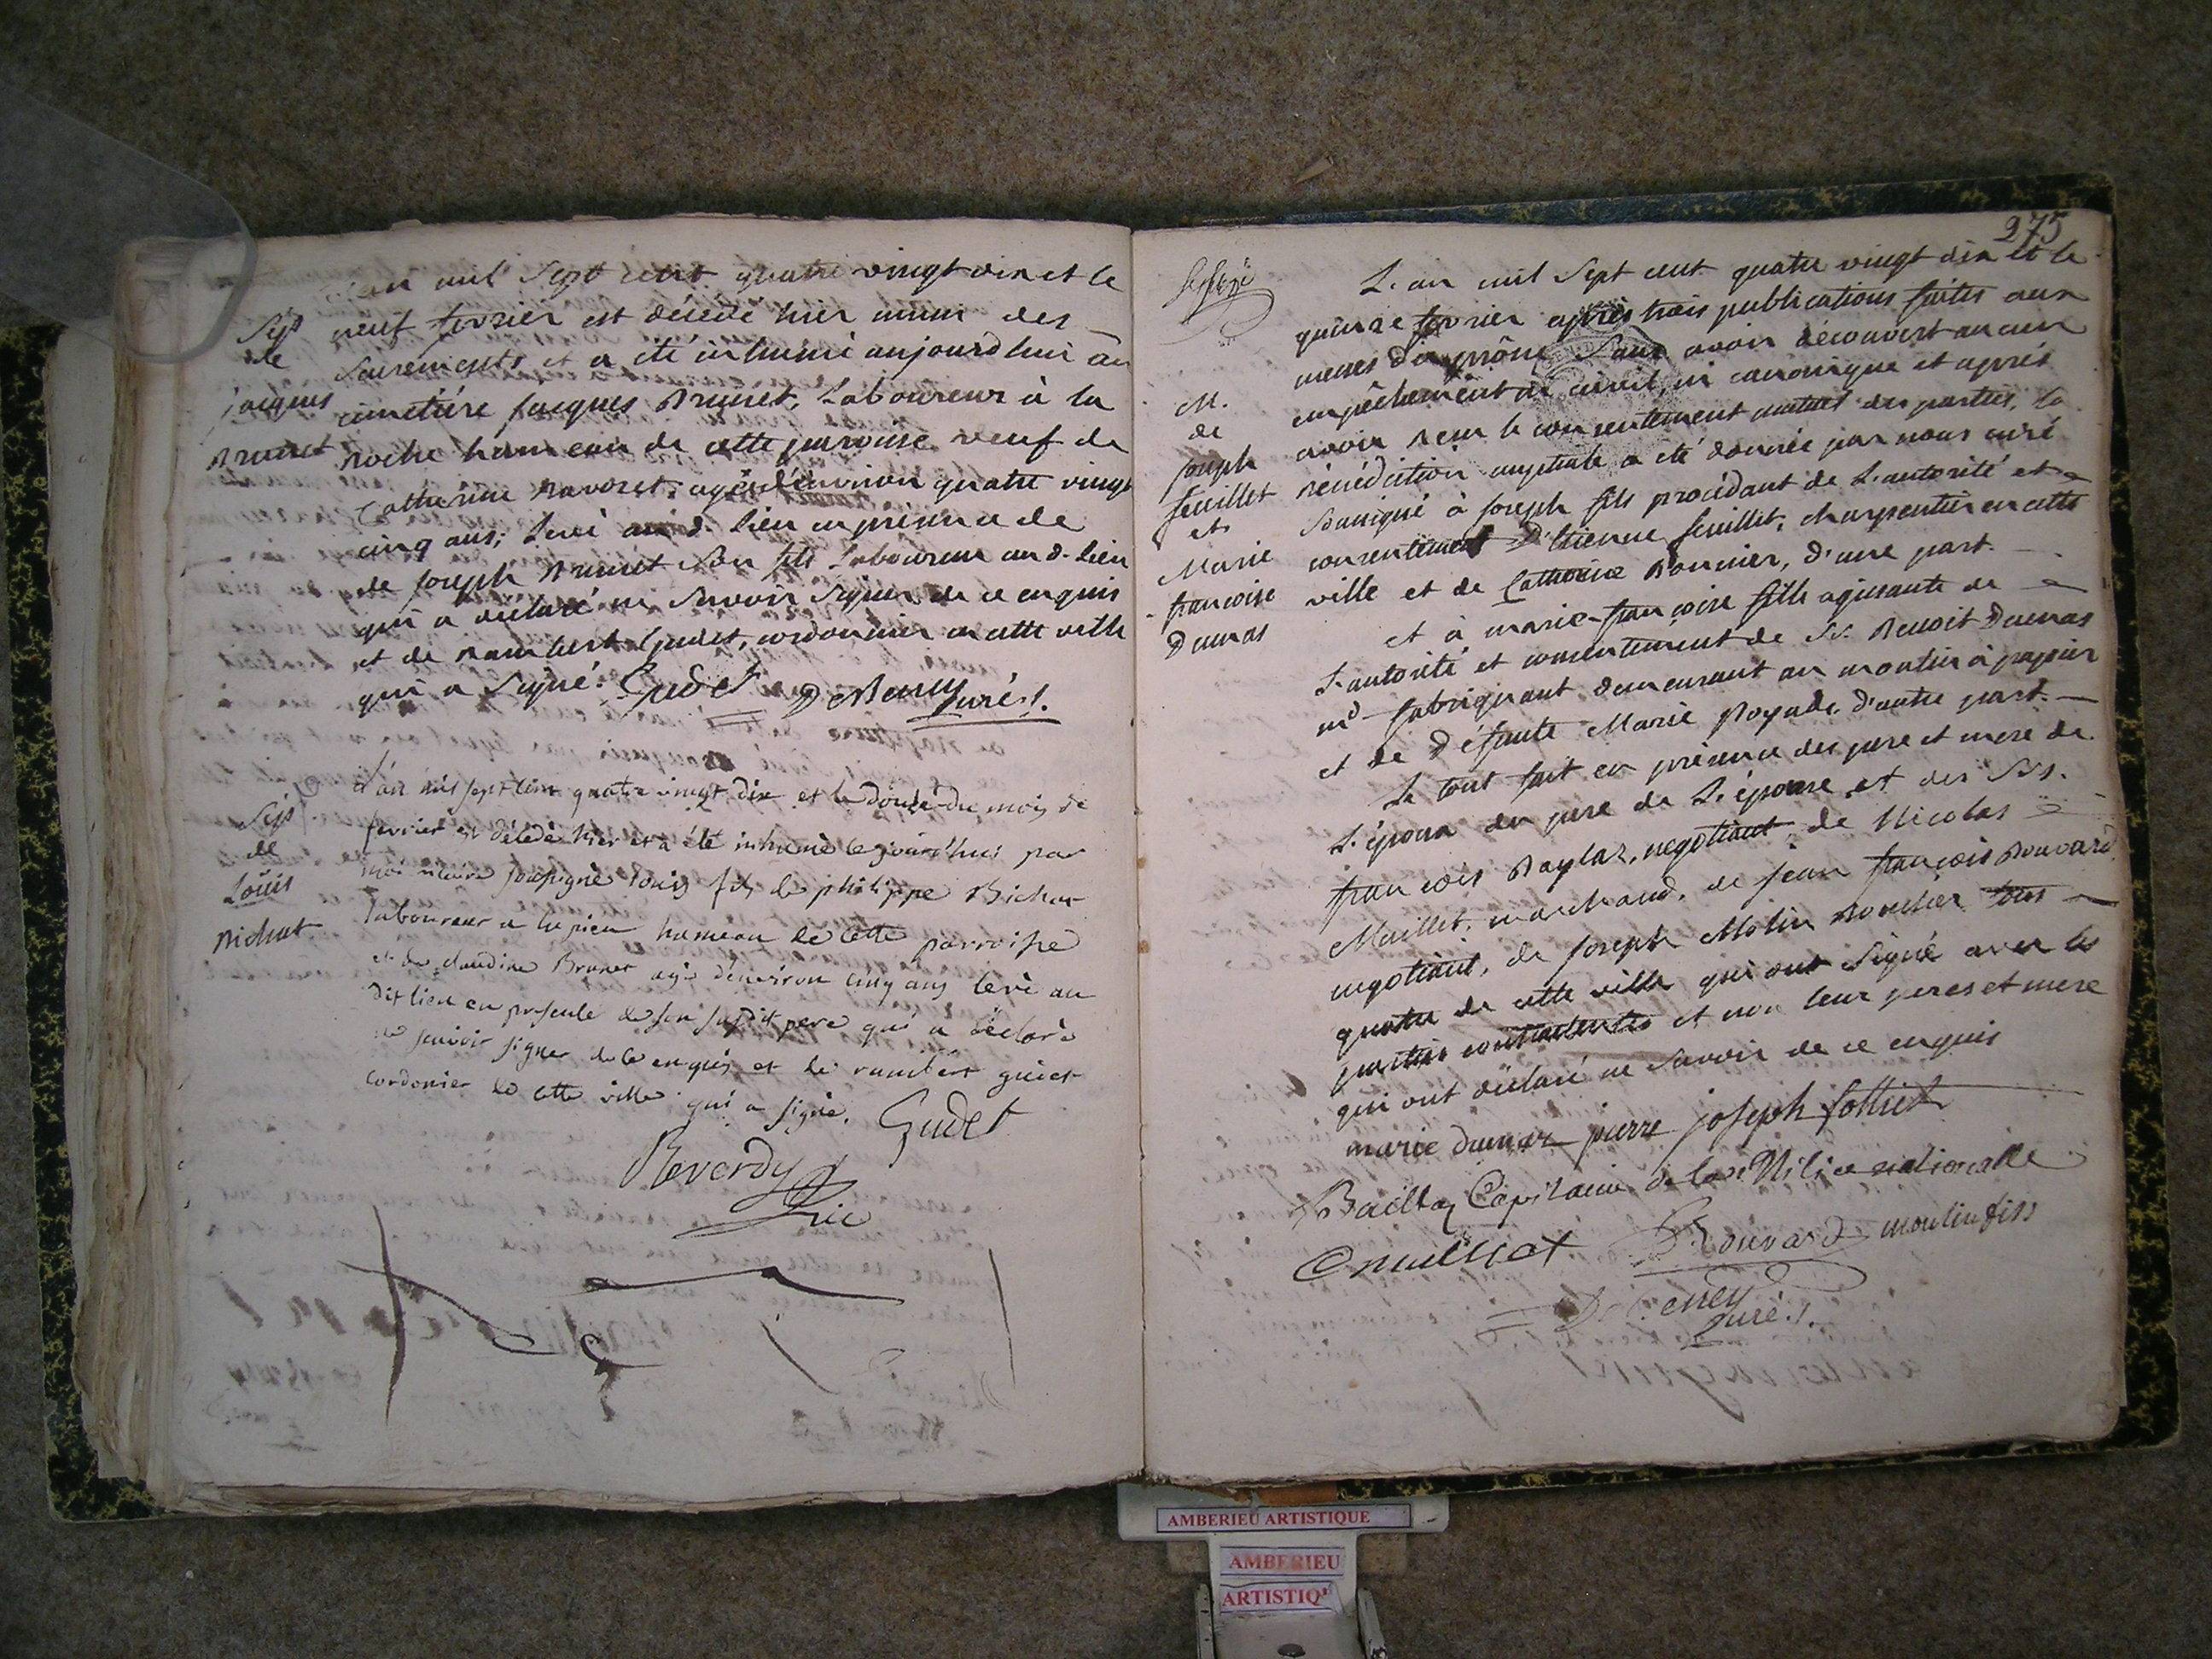 L'an mil Sept cent quatre vingt dix et le
Sep
de
jacques
Brunet
neuf fevrier est décédé hier muni des
Sacrements et a été inhumé aujourd'hui au
cimetiére jacques Brunet, Laboureur à la
Roche hameau de cette paroisse veuf de
Catherine Ravoret, agé d'environ quatre vingt
cinq ans; Levé aud. lieu en présence de
de joseph Brunet Son fils Laboureur aud. lieu
qui a déclaré ne Savoir Signer de ce enquis
et de Rambert Gudet, cordonnier en cette ville
qui a Signé. Gudet
Curé.
L'an mil sept cent quatre vingt dix et le douze du mois de
Sep
de
Louis
Bichat
fevrier est décédé hier et a été inhumé le jourd'hui par
moi vicaire soussigné Louis fils de philippe Bichat
laboureur a hameau de cette parroisse
et de claudine Brunet agé d'environ cinq ans levé au
dit lieu en presence de son susdit pere qui a déclaré
ne scavoir signer de ce enquis et de rambert gudet
cordonier de cette ville qui a signé. Gudet
Reverdy
Vic
275
L'an mil Sept cent quatre vingt dix et le
M.
de
joseph
feuillet
et
Marie
francoise
Dumas
quinze fevrier après trois publications faites aux
messes du prône Sans avoir découvert aucun
empêchement ni civil, ni canonique et après
avoir reçu le consentement mutuel des parties, la
Bénédiction nuptiale a été donnée par nous curé
Soussigné à joseph fils procédant de L'autorité et
consentement D'Etienne feuillet, charpentier en cette
ville et de Catherine Bonnier, d'une part.
et à marie-françoise fille agissante de
L'autorité et consentement de Sr. Benoit Dumas
md fabriquant demeurant au moulin à papier
et de Défunte Marie Royade, d'autre part.
Le tout fait en présence des pere et mere de
L'époux du pere de L'épouse et des Srs.
françois negotiant, de Nicolas
Maillet, marchand, de jean françois Bouvard
negotiant, de joseph Molin Boucher tous
quatre de cette ville qui ont Signé avec les
parties contractantes et non leur peres et mere
qui ont déclaré ne Savoir de ce enquis
marie dumas pierre joseph
Capitaine de la Milice nationalle
Bouvard moulin fils
Curé.
AMBERIEU ARTISTIQUE
AMBERIEU
ARTISTIQ'